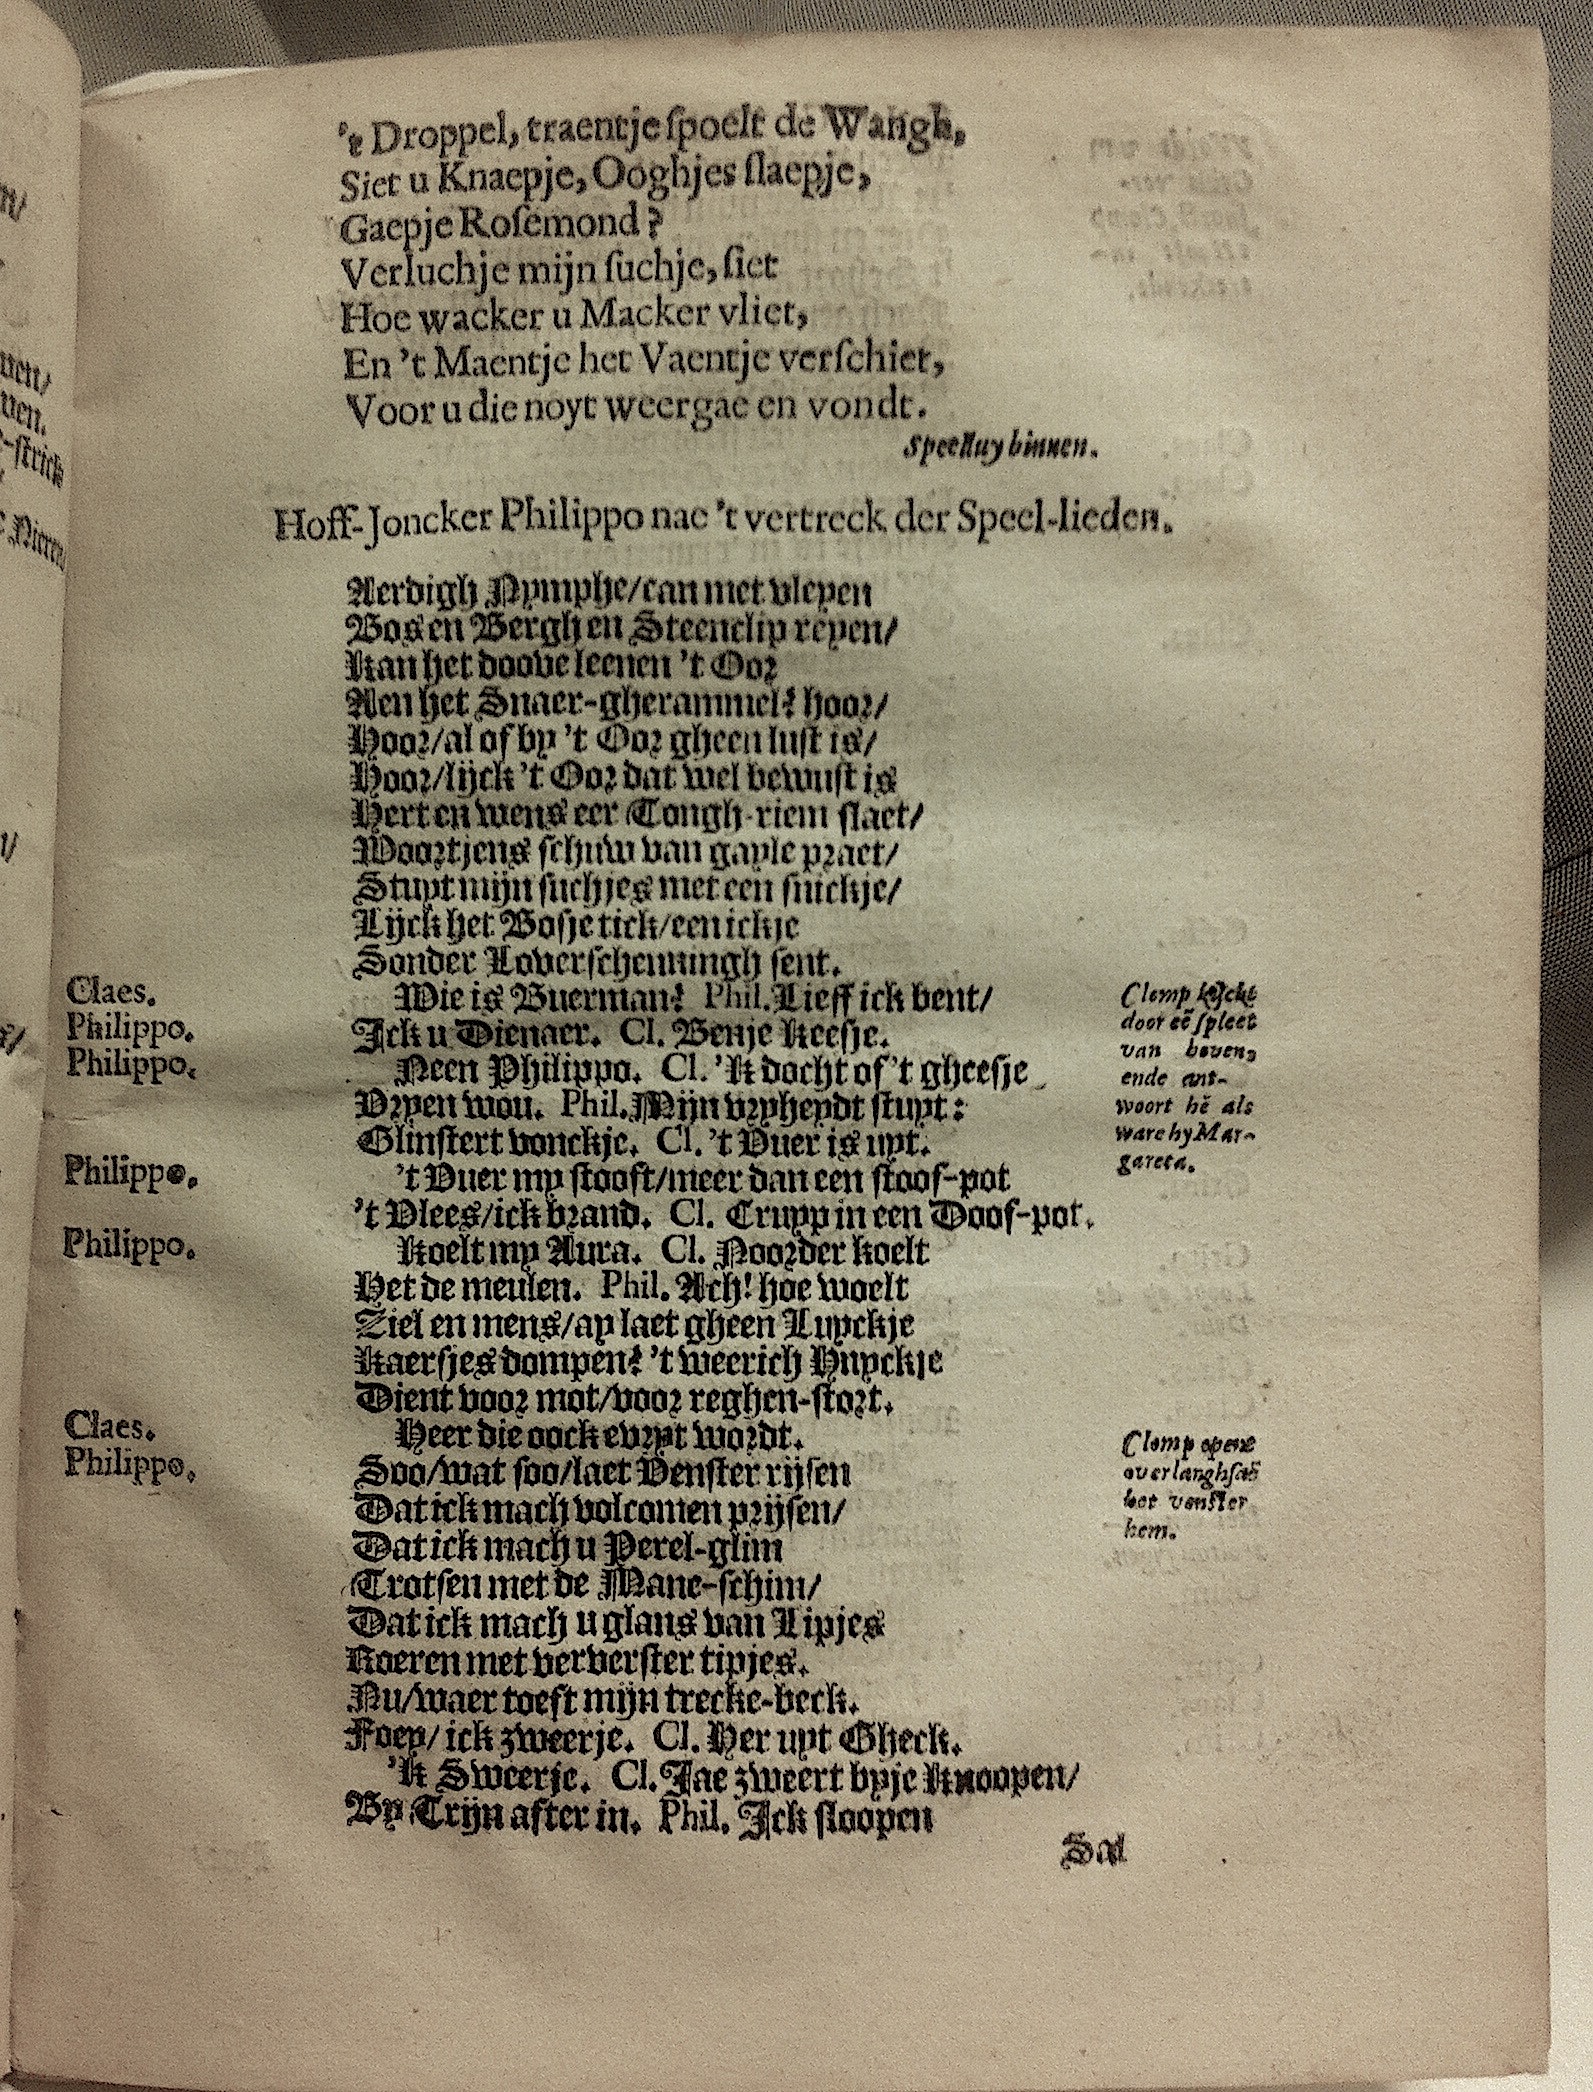 't Droppel, traentje spoelt de Wangh,
Siet u Knaepje, Ooghjes slaepje,
Gaepje Rosemond?
Verluchje mijn suchje, siet
Hoe wacker u Macker vliet,
En 't Maentje het Vaentje verschiet,
Voor u die noyt weergae en vondt.
Speelluy binnen.
Hoff-Joncker Philippo nae 't vertreck der Speel-lieden.
Aerdigh Nymphe/can met vleyen
Bos en Bergh en Steenclip reyen/
Kan het doove leenen 't Oor
Aen het Snaer-gherammel? hoor/
Hoor/al of by 't Oor gheen lust is/
Hoor/lijck 't Oor dat wel bewust is
Hert en wens eer Tongh-riem slaet/
Woortjens schuw van gayle praet/
Stuyt mijn suchjes met een snickje/
Lijck het Bosje tick/een ickje
Sonder Loverschenningh sent.
Claes. Wie is Buerman? Phil. Lieff ick bent/
Philippo. Ick u Dienaer. Cl. Benje Keesje.
Philippo. Neen Philippo. Cl. 'K docht of 't gheesje
Vryen wou. Phil. Mijn vryheydt stuyt:
Glinstert vonckje. Cl. 't Vuer is uyt.
Philippo. 't Vuer my stooft/meer dan een stoof-pot
't Vlees/ick brand. Cl. Cruyp in een Doof-pot.
Philippo. Koelt my Aura. Cl. Noorder koelt
Het de meulen. Phil. Ach! hoe woelt
Ziel en mens/ay laet gheen Luyckje
Kaersjes dompen? 't weerich Huyckje
Dient voor mot/voor reghen-stort.
Claes. Heer die oock evryt wordt.
Philippo. Soo/wat soo/laet Venster rijsen
Dat ick mach volcomen prijsen/
Dat ick mach u Perel-glim
Trotsen met de Mane-schim/
Dat ick mach u glans van Lipjes
Roeren met ververster tipjes.
Nu/waer toeft mijn trecke-beck.
Foey/ick zweerje. Cl. Her uyt Gheck.
'k Sweerje. Cl. Jae zweert byje Knoopen/
By Trijn after in. Phil. Ick sloopen
Sal
Clomp kijckt
door eẽ spleet
van boven,
ende ant-
woort hẽ als
ware hy Mar-
gareta.
Clomp opent
overlanghsaẽ
het venster
hem.